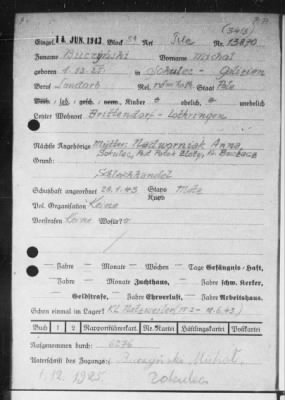 (5415)
Eingel. 14. JUN. 1943 Block 59 Art Pole No. 13870
Zuname Buczynski Vorname Michał
geboren 1.12.25. in Sokulec - Galizien
Beruf Landarb Rel. röm.kath. Staat Pole
Wohn., led., gesch., verw., Kinder ehelich, unehelich
Letzter Wohnort Brittendorf - Lothringen
Nächste Angehörige Mutter: Nadwornick Anna,
Sokulec, Post Potok Złoty, Kr. Buczacz
Grund: Schleichhandel
Schutzhaft angeordnet 28.1.43 Stapo Metz
Pol. Organisation Keine
Vorstrafen Keine Wofür?
— Jahre — Monate — Wochen — Tage Gefängnis-Haft,
— Jahre — Monate Zuchthaus, — Jahre schw. Kerker,
Geldstrafe, — Jahre Ehrverlust, — Jahre Arbeitshaus.
Schon einmal im Lager? KL Natzweiler
Buch 1 2 Rapportführerkart. Nr.-Kartei Häftlingskartei Postkartei
Aufgenommen durch: 6276
Unterschrift des Zugangs: Buczyński Michał
1.12.1925. Sokulec